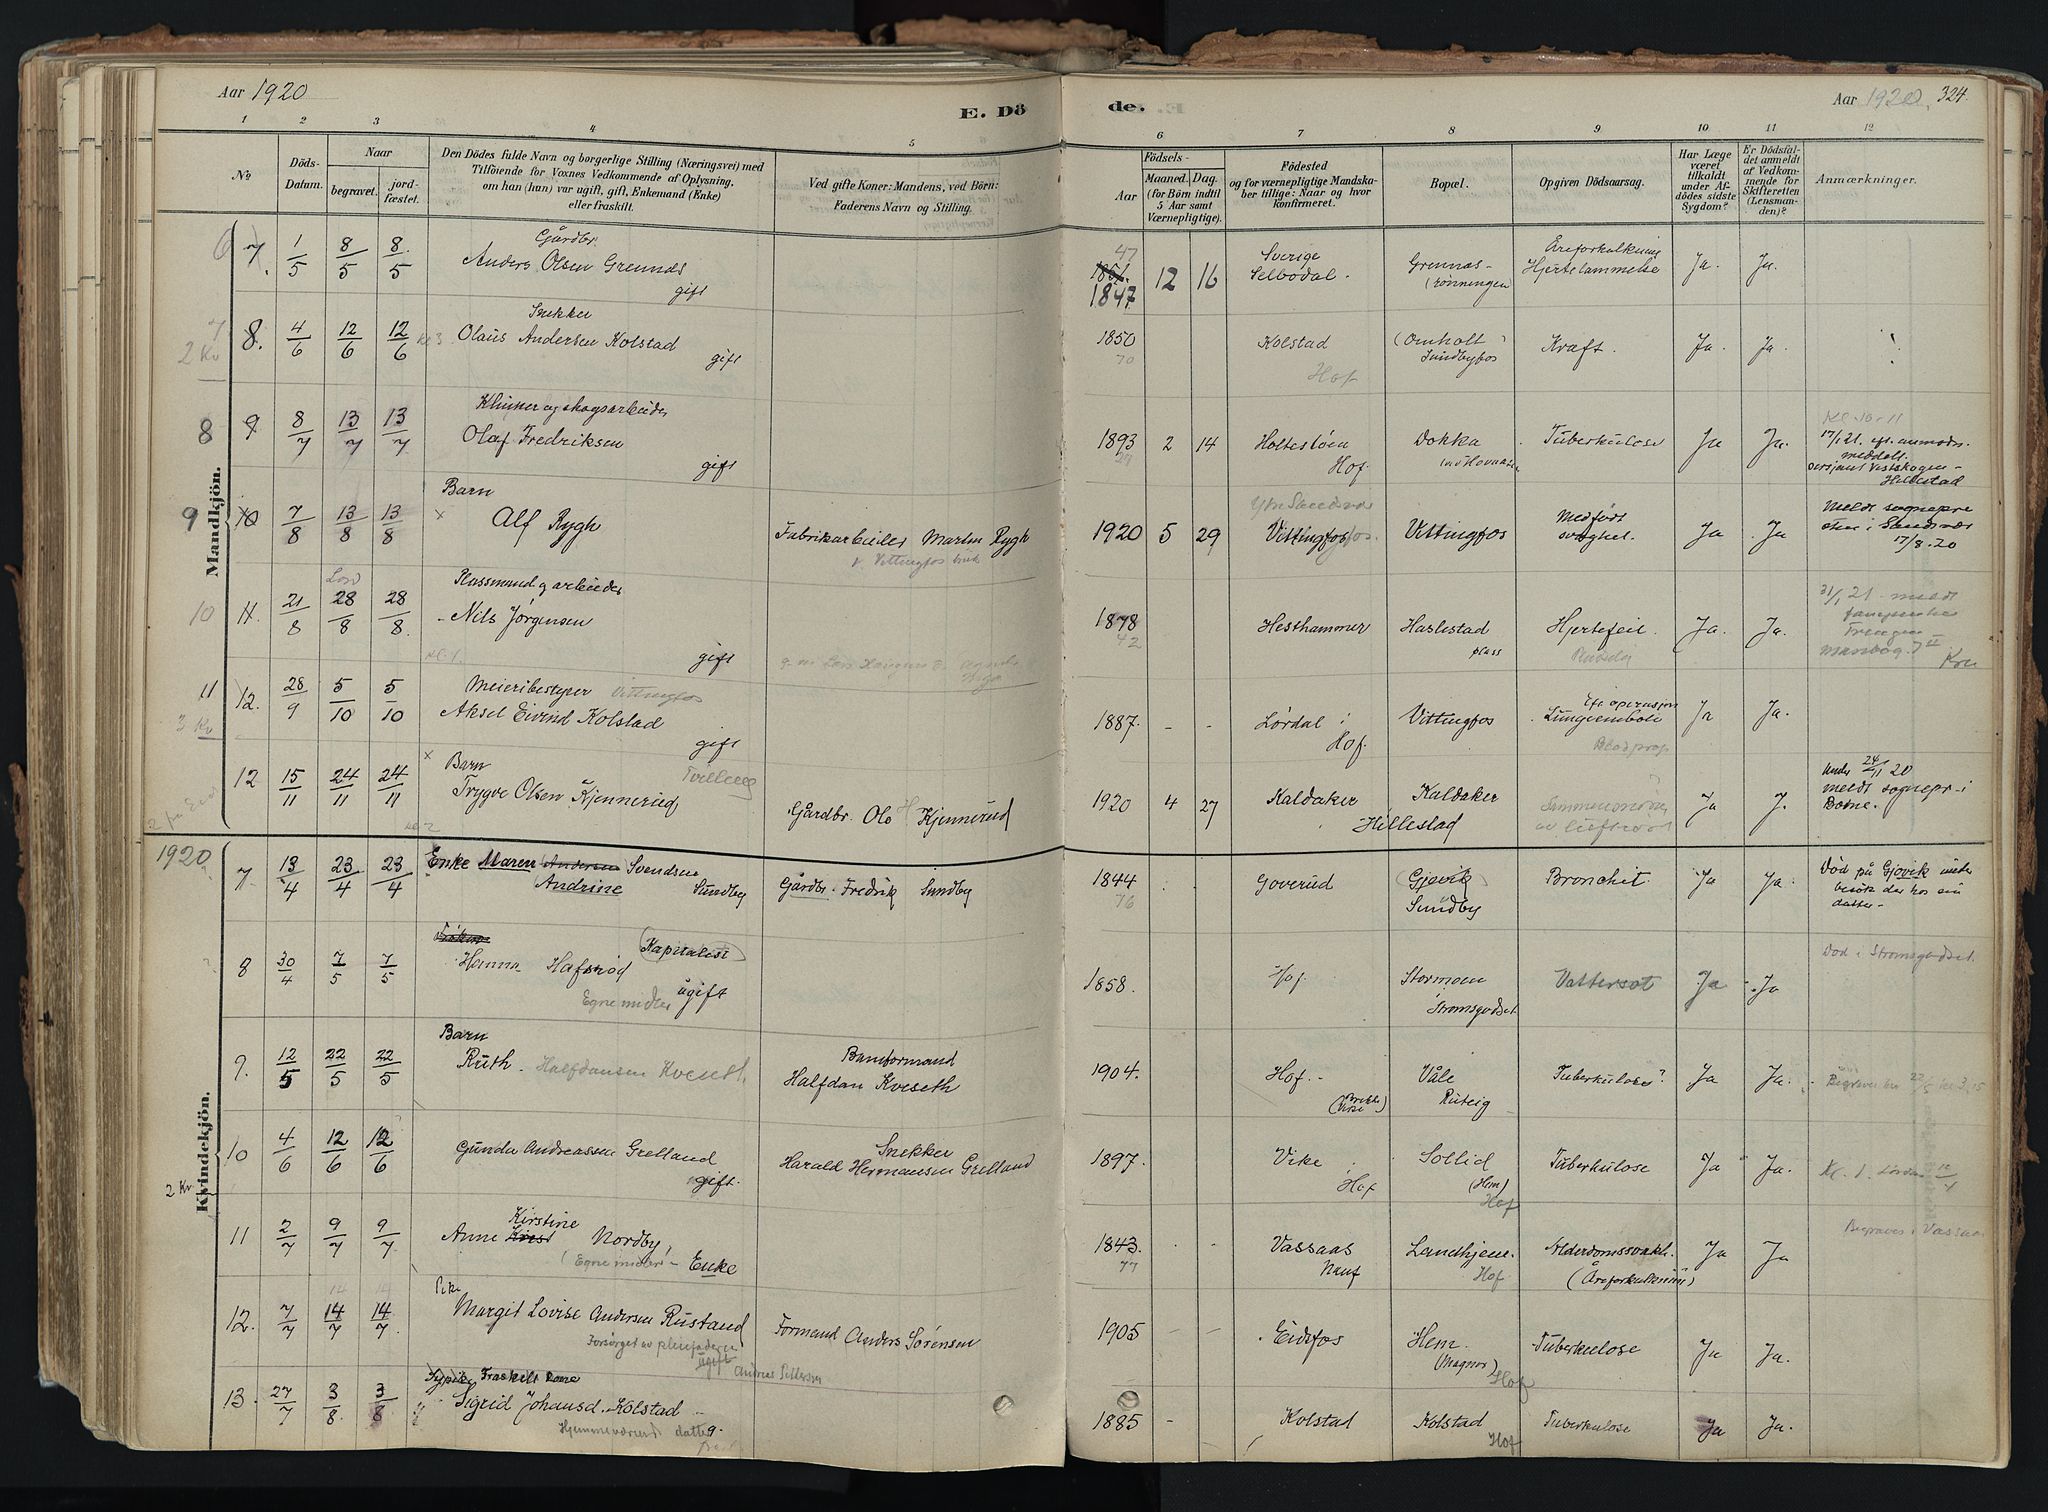 Aar 1920
E. Dö
de.
Aar 1920 324.
1 2 3 4 5 6 7 8 9 10 11 12
No
Döds-Datum.
Naar
begravet.
jord-fæstet.
Den Dödes fulde Navn og borgerlige Stilling (Næringsvei) med
Tilföiende for Voxnes Vedkommende af Oplysning,
om han (hun) var ugift, gift, Enkemand (Enke)
eller fraskilt.
Ved gifte Koner: Mandens, ved Börn:
Faderens Navn og Stilling.
Födsels-
Aar
Maaned. Dag.
(for Börn indtil
5 Aar samt
Værnepligtige).
Födested
og for værnepligtige Mandska-
ber tillige: Naar og hvor
konfirmeret.
Bopæl.
Opgiven Dödsaarsag.
Har Læge
været
tilkaldt
under Af-
dödes sidste
Sygdom?
Er Dödsfal-
det anmeldt
af Vedkom-
mende for
Skifteretten
(Lensman-
den)?
Anmærkninger.
Mandkjön.
6 7. 1/5 8/5 8/5 Gårdbr. Anders Olsen Grennes gift
47 1847 12 16 Sverige Selbodal. Grennes (rönningen Åreforkalkning Hjertelammelse Ja. Ja.
7 2 Kv 8. 4/6 12/6 12/6 Snekker Olaus Andersen Kolstad gift
1850 70 Kolstad Hof (Omholt Sundbyfos Kræft. Ja. Ja.
8 9 8/7 13/7 13/7 skogsarbeider Olaf Fredriksen gift
1893 2 14 Hof. Dokka Tuberkulose Ja Ja. Kl. 10-11 17/1 21. meddelt Vestskogen - Hillestad
9 10 7/8 13/8 13/8 Barn × Alf Rygh Fabrikarbeider Martin Rygh
1920 5 29 Vittingfos Vittingfos Medfödt svaghet. Ja Ja Meldt sognepresten i Sandsvær 17/8.20
10 11. 21/8 28/8 28/8 Plassmand og arbeider Nils Jörgensen gift
1878 42 Hesthammer Haslestad plass Hjertefeil. Ja. Ja. 31/1 21 meldt
11 3 Kv 12. 28/9 5/10 5/10 Meieribestyrer Vittingfos Aksel Eivind Kolstad gift
1887. - - Lördal i Hof. Vittingfos Eft. operasjon Lungeemboli Blodprop Ja Ja.
12 15/11 24/11 24/11 × Barn Tvilling Trygve Olsen Kjennerud Gårdbr. Ole H Kjennerud
1920 4 27 Kaldaker Hillestad Kaldaker Ja J. Under 24/11 20 meldt sognepr. i Botne.
1920
Kvindekjön.
7 13/4 23/4 23/4 Enke Maren Andersen Andrine Svendsen Sundby Gårdbr. Fredrik Sundby
1844 76 Goverud (Gjøvik) Sundby Bronchit. Ja Ja. Död på Gjøvik under besök der hos sin datter -
8 30/4 7/5 7/5 Fröken Hanna Hafsröd (Kapitalist) Egne midler ugift
1858. Hof. Stormoen Strømsgodset. Vattersot Ja Ja Död i Strømsgodset.
9. 12/5 22/5 22/5 Barn Ruth Halfdansen Kveseth. Baneformand Halfdan Kveseth
1904. Hof. - Våle Tuberkulose? Ja Ja.
10 4/6 12/6 12/6 Gunda Andreassen Grelland gift. Snekker Harald Hermansen Grelland
1897. Vike Hof Sollid (Hem) Hof Tuberkulose Ja Ja.
2 Kv.
11 2/7 9/7 9/7 Anne Krist Kirstine Nordby, (Egne midler - Enke
1843. 77 Vassaas Landhjem. Hof Alderdomssvakh. (Åreforkalkning) Ja Ja Begraves i Vassaas
12. 7/7 14/7 14/7 Pike Margit Lovise Andersen Rustand Forsörget av pleiefaderen ugift Formand Anders Sörensen Andreas Pettersen
1905 Eidsfos Hem. (Magnor) Hof Tuberkulose Ja Ja.
13. 27/7 3/8 3/8 Sypike Fraskilt kone Sigrid Johansd. Kolstad Hjemmeværende datter
1885 - Kolstad Kolstad Hof Tuberkulose Ja Ja.